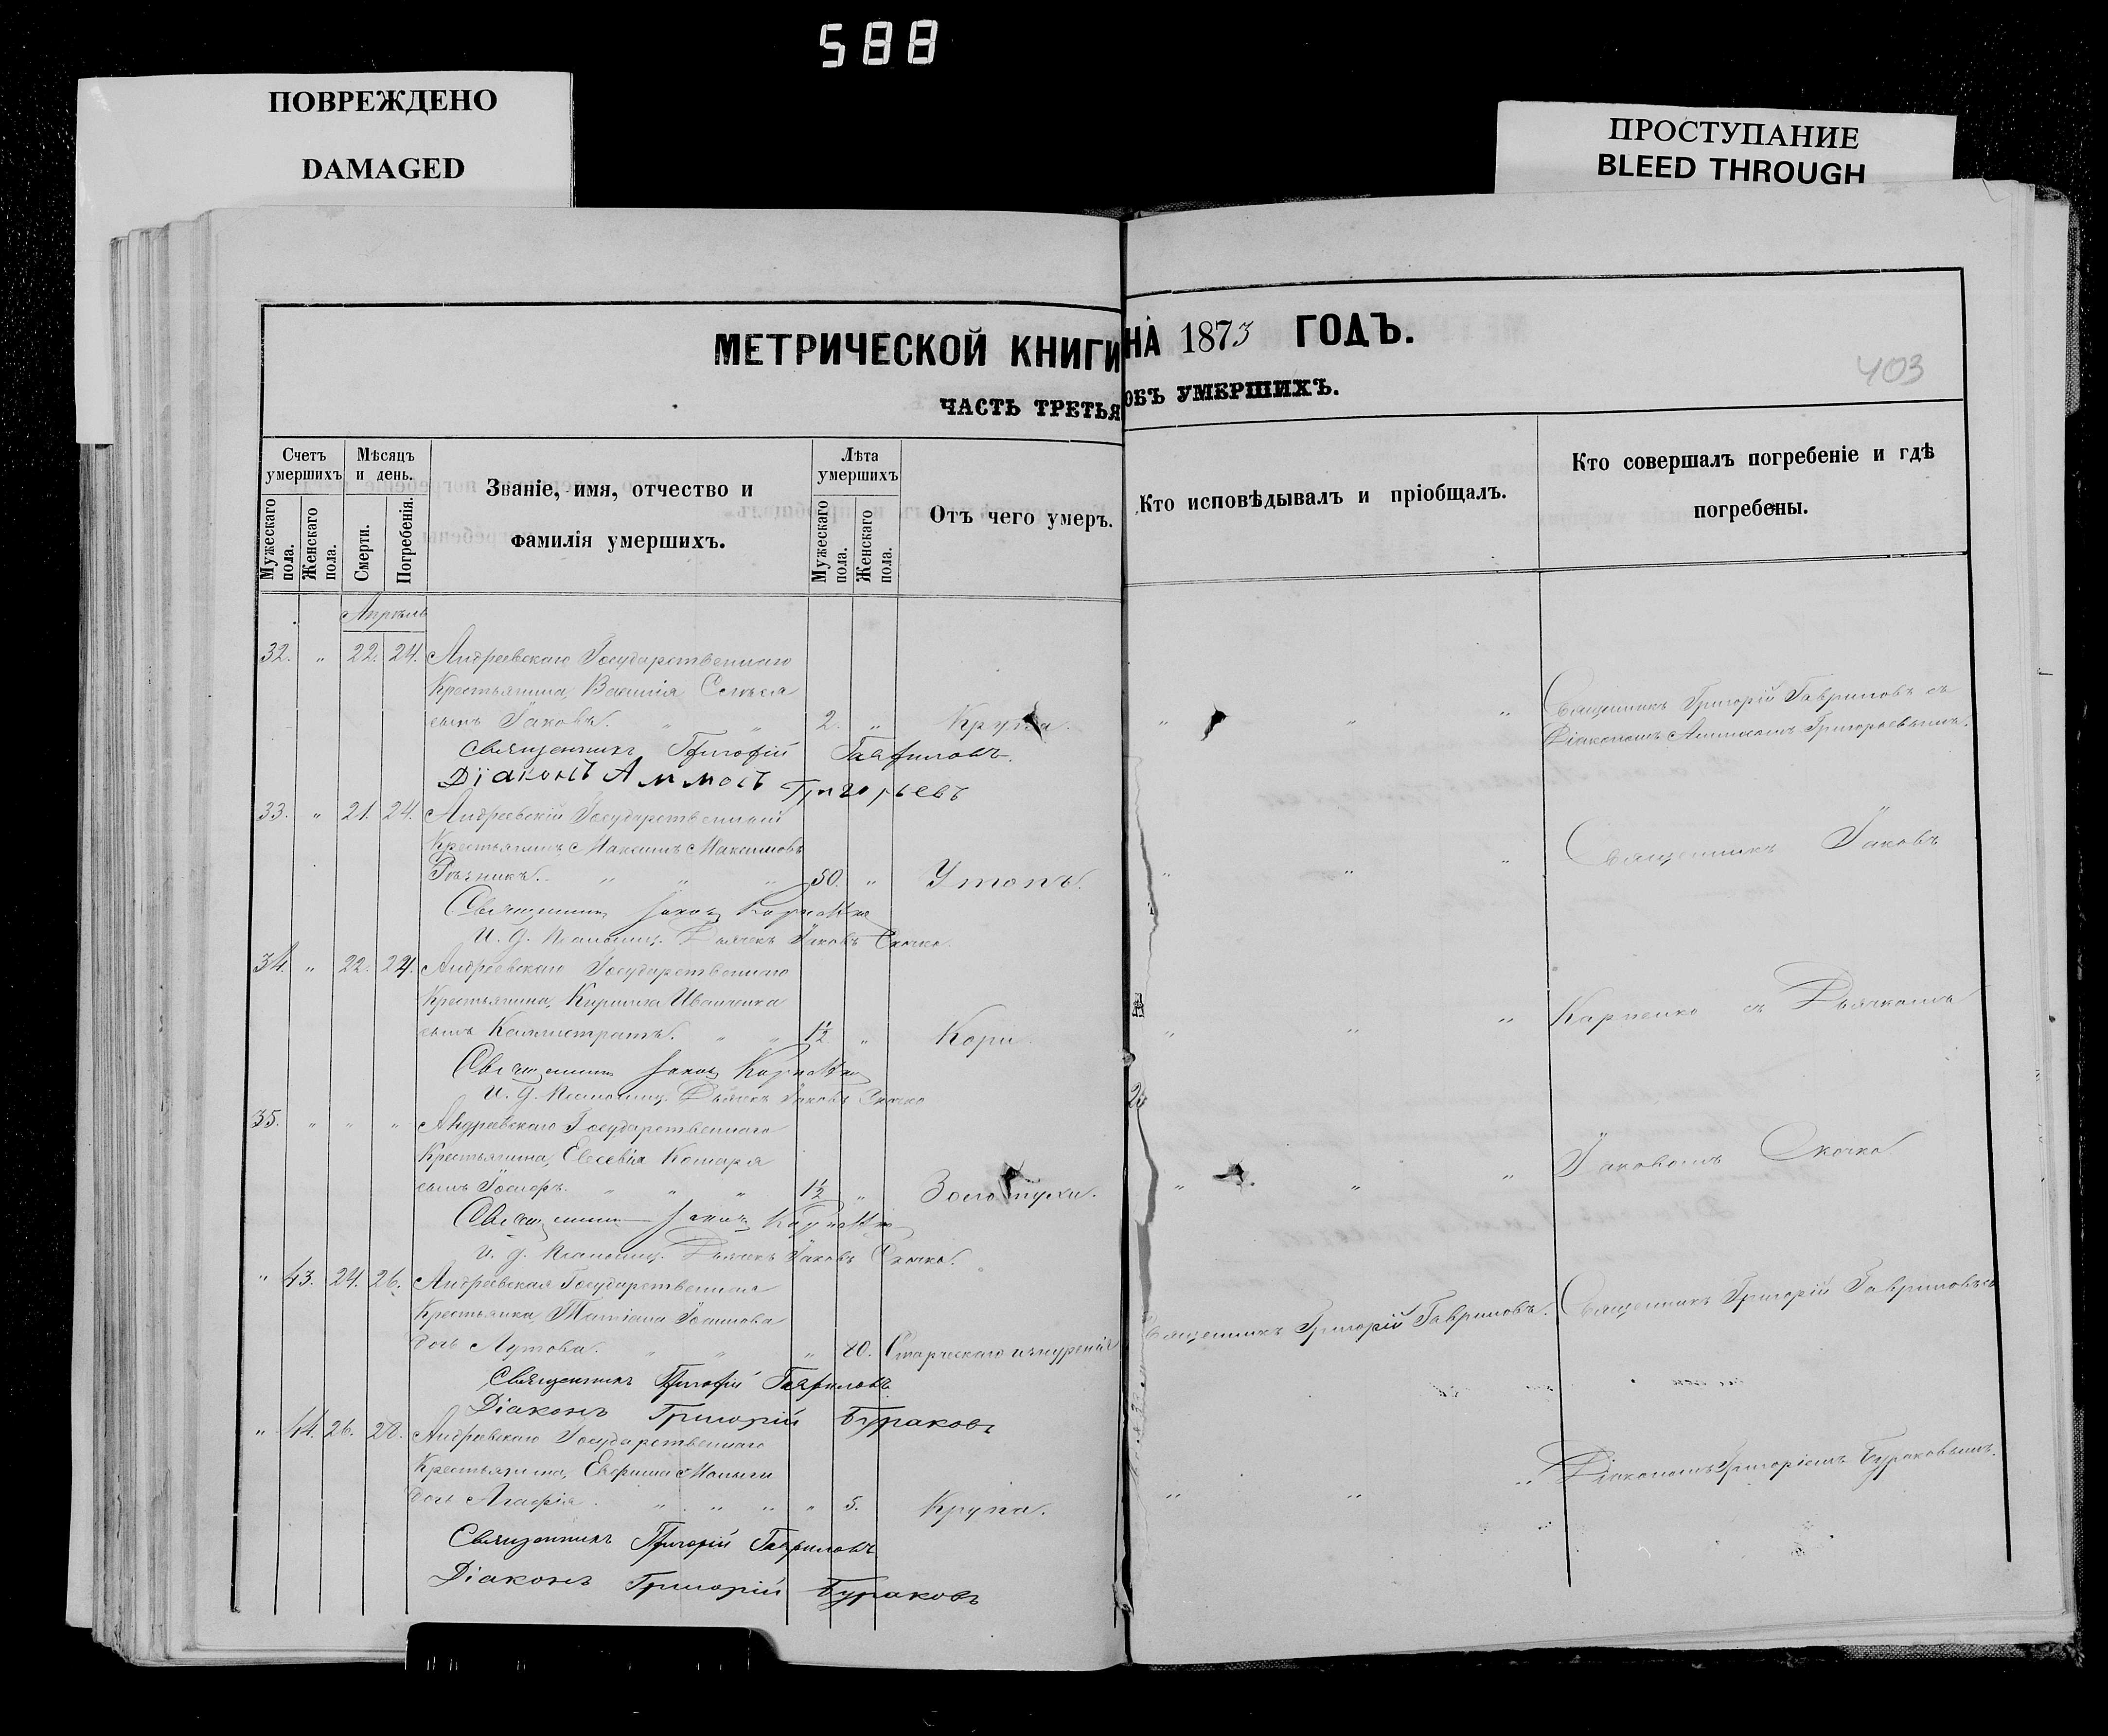 588
ПОВРЕЖДЕНО
DAMAGED
ПРОСТУПАНИЕ
BLEED THROUGH
МЕТРИЧЕСКОЙ КНИГИ НА 1873 ГОДЪ.
403
ЧАСТЬ ТРЕТЬЯ ОБЪ УМЕРШИХЪ.
Счетъ умершихъ
Мужескаго пола.
Женскаго пола.
Мѣсяцъ и день.
Смерти.
Погребенія.
Званіе, имя, отчество и
фамилія умершихъ.
Лѣта умершихъ
Мужескаго пола.
Женскаго пола.
Отъ чего умеръ.
Кто исповѣдывалъ и пріобщалъ.
Кто совершалъ погребеніе и гдѣ
погребены.
Апрѣль
32. " 22. 24. Андреевскаго Государственнаго
Крестьянина, Василія
сынъ Іаковъ. " " 2. " Крупа. " " "
Священникъ Григорій Гавриловъ съ
Діакономъ Аммосомъ Григорьевымъ.
Священникъ Григорій Гавриловъ.
Діаконъ Аммосъ Григорьевъ
33. " 21. 24. Андреевскій Государственный
Крестьянинъ Максимъ Максимовъ
Рѣзникъ. " " " 50. " Утопъ. " " "
Священникъ Іаковъ
Священникъ Іаковъ Карпенко
И. д. Псаломщ. Дьячекъ Іаковъ Скочко.
34. " 22. 24. Андреевскаго Государственнаго
Крестьянина, Кирилла Иванченка
сынъ Каллистратъ. " " 1½ " Кори. " " "
Карпенко съ Дьячкомъ
Священникъ Іаковъ Карпенко
И. д. Псаломщ. Дьячекъ Іаковъ Скочко
35. " " " Андреевскаго Государственнаго
Крестьянина, Евсевія Комаря
сынъ " " " 1½ " Золотухи. " " "
Іаковомъ Скочко
Священникъ Іаковъ Карпенко
И. д. Псаломщ. Дьячекъ Іаковъ Скочко.
" 43. 24. 26. Андреевская Государственная
Крестьянка Татіана
дочь Лутова. " " " 80. Старческаго изнуренія
Священникъ Григорій Гавриловъ.
Священникъ Григорій Гавриловъ съ
Священникъ Григорій Гавриловъ.
Діаконъ Григорій Бураковъ
" 44. 26. 28. Андреевскаго Государственнаго
Крестьянина,
дочь Агафія. " " " " 5. Крупа. " " "
Діакономъ Григоріемъ Бураковымъ.
Священникъ Григорій Гавриловъ
Діаконъ Григорій Бураковъ